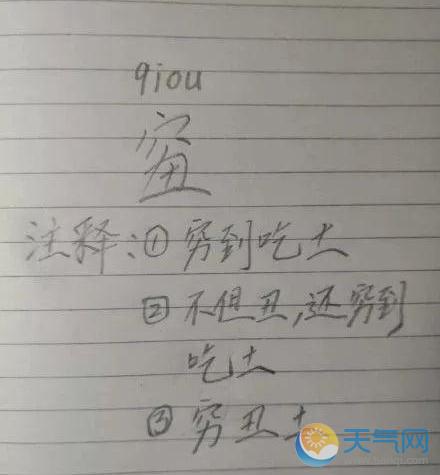 qiou
注释:①穷到吃土
②不但丑,还穷到
吃土
③穷丑土
天气网